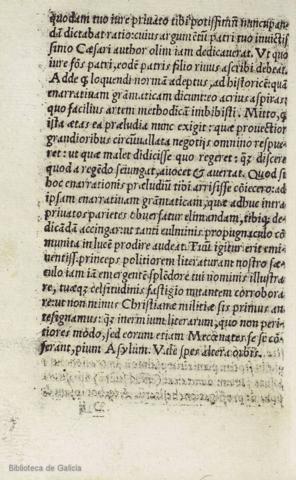 quodam tuo iure priuato tibi potissimū nuncupan
dā dictabat ratio: cuius argumētū patri tuo inuictis
simo Cæsari author olim iam dedicauerat. Vt quo
iure fōs patri, eodē patris filio riuus ascribi debeat.
Adde q loquendi normā adeptus, ad historicē: quā
enarratiuam grāmaticam dicunt: eo acrius aspiras:
quo facilius artem methodicā imbibisti. Mitto, q
ista ætas ea præludia nunc exigit: quæ prouectior
grandioribus circūuallata negotijs omnino respue
ret: ut quæ malet didicisse quo regeret: q̃ discere
quod a regēdo seiungat, auocet & auertat. Quod si
hoc enarrationis præludiū tibi arrisisse cōiecero: ad
ipsam enarratiuam grāmaticam, quæ adhuc intra
priuatos parietes obuersatur elimandam, tibiq; de
dicādā accingar: ut tanti culminis propugnaculo cō
munita in lucē prodire audeat. Tuū igitur erit emi
nentiss. princeps politiorem literaturam nostro sæ-
culo iam iā emergentē splēdore tui nominis illustra
re, tuæq; celsitudinis fastigio nutantem corrobora
re: ut non minus Christianæ militiæ sis primus an
tesignanus: q̃ inermium literarum, quo non peri
tiores modo, sed eorum etiam Mecœnates se se cō
ferant, pium Asylum. Vale spes altera orbis.
Biblioteca de Galicia